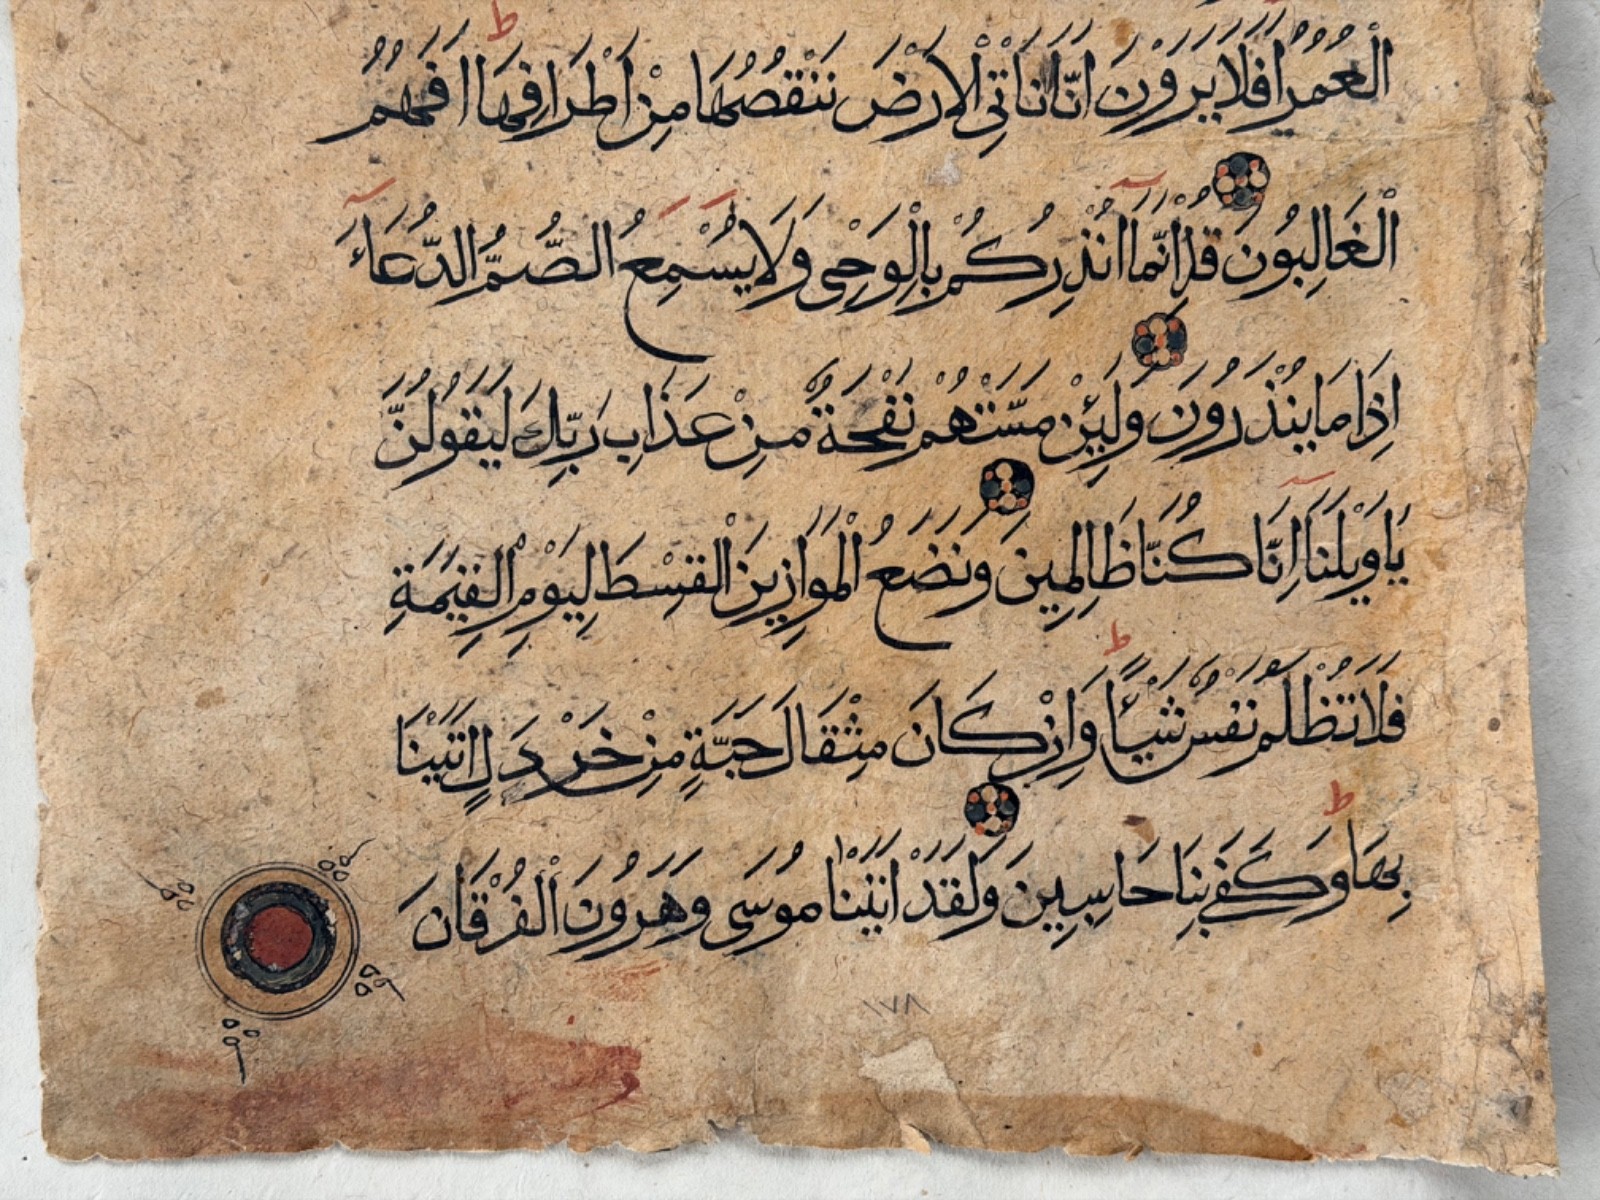 الْعُمُرُ اَفَلَا يَرَوْنَ اَنَّا نَاْتِى الْاَرْضَ نَنْقُصُهَا مِنْ اَطْرَافِهَا اَفَهُمُ
الْغَالِبُونَ قُلْ اِنَّمَا اُنْذِرُكُمْ بِالْوَحْىِ وَلَا يَسْمَعُ الصُّمُّ الدُّعَاءَ
اِذَا مَا يُنْذَرُونَ وَلَئِنْ مَسَّتْهُمْ نَفْحَةٌ مِنْ عَذَابِ رَبِّكَ لَيَقُولُنَّ
يَاوَيْلَنَا اِنَّا كُنَّا ظَالِمِينَ وَنَضَعُ الْمَوَازِينَ الْقِسْطَ لِيَوْمِ الْقِيٰمَةِ
فَلَا تُظْلَمُ نَفْسٌ شَيْـًٔا وَاِنْ كَانَ مِثْقَالَ حَبَّةٍ مِنْ خَرْدَلٍ اَتَيْنَا
بِهَا وَكَفَى بِنَا حَاسِبِينَ وَلَقَدْ اٰتَيْنَا مُوسَى وَهَرُونَ الْفُرْقَانَ
١٧٨